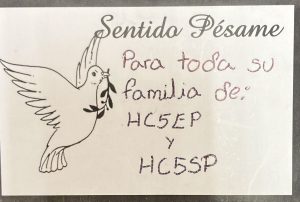 Sentido Pésame
Para toda su
familia de:
HC5EP
y
HC5SP